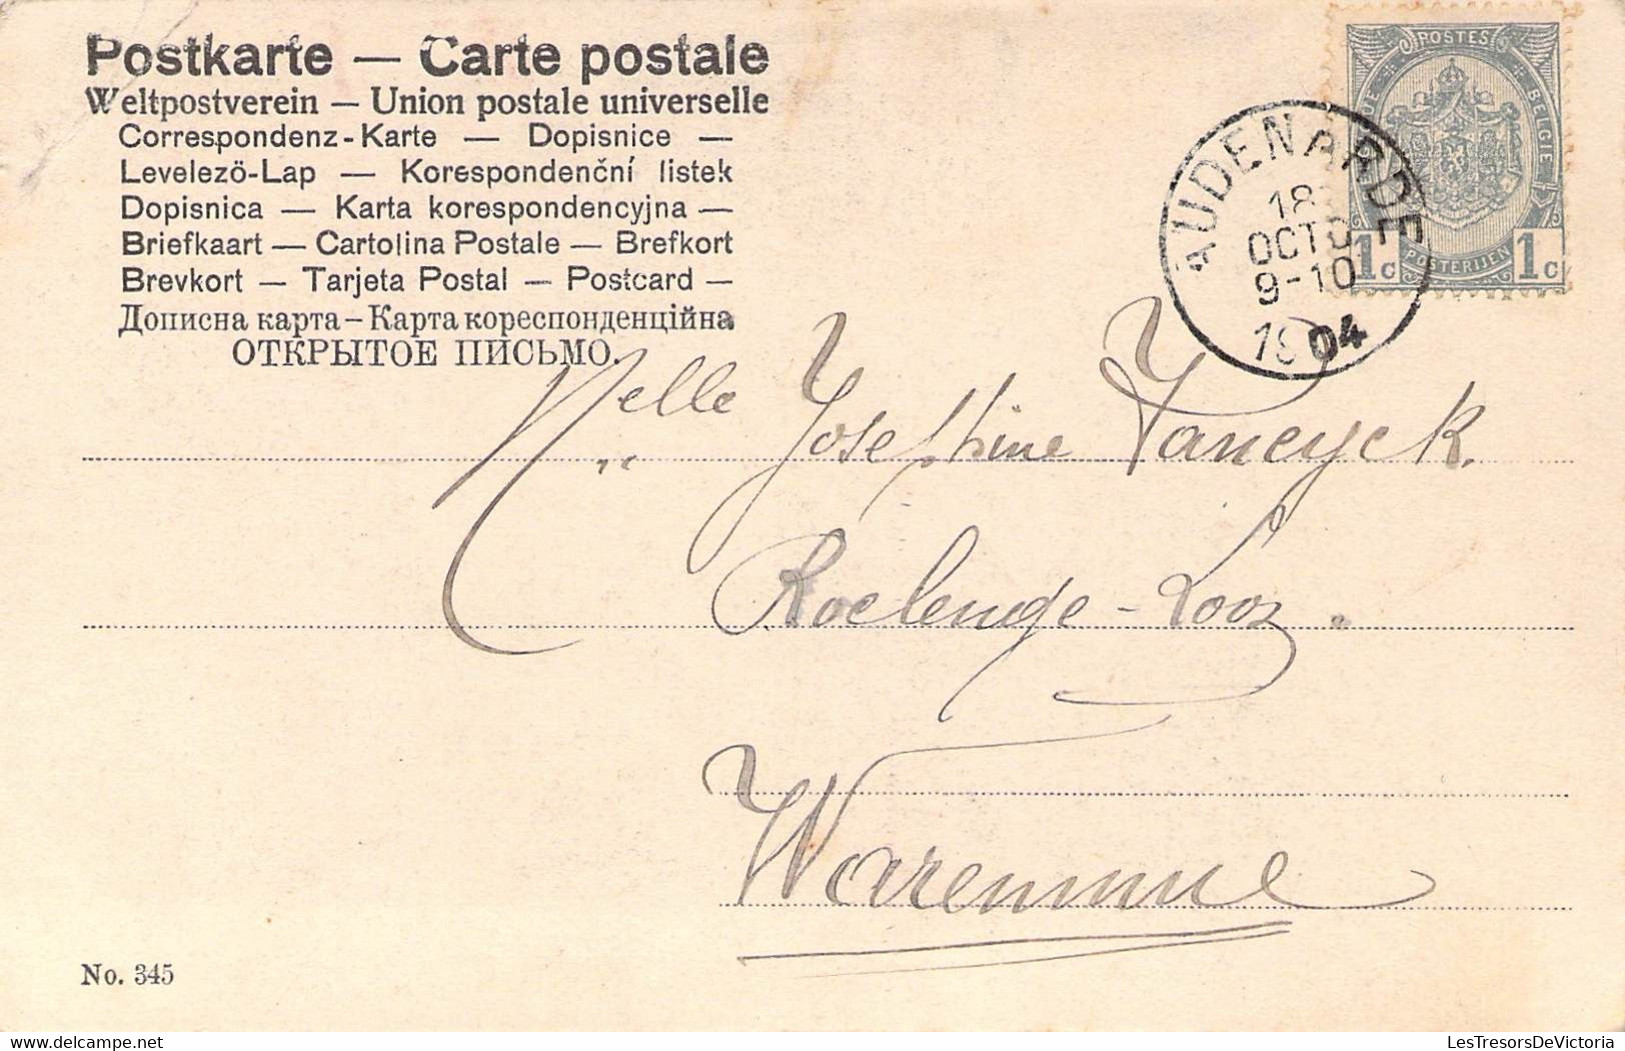 Postkarte — Carte postale
Weltpostverein — Union postale universelle
Correspondenz-Karte — Dopisnice —
Levelezö-Lap — Korespondenční listek
Dopisnica — Karta korespondencyjna —
Briefkaart — Cartolina Postale — Brefkort
Brevkort — Tarjeta Postal — Postcard —
Дописна карта – Карта кореспонденційна
ОТКРЫТОЕ ПИСЬМО.
POSTES
DE BELGIE
1c POSTERIJEN 1c
AUDENARDE
18
OCTO
9-10
1904
Melle Josephine Vaneyck.
Roclenge-Looz.
Waremme
No. 345
LesTresorsDeVictoria